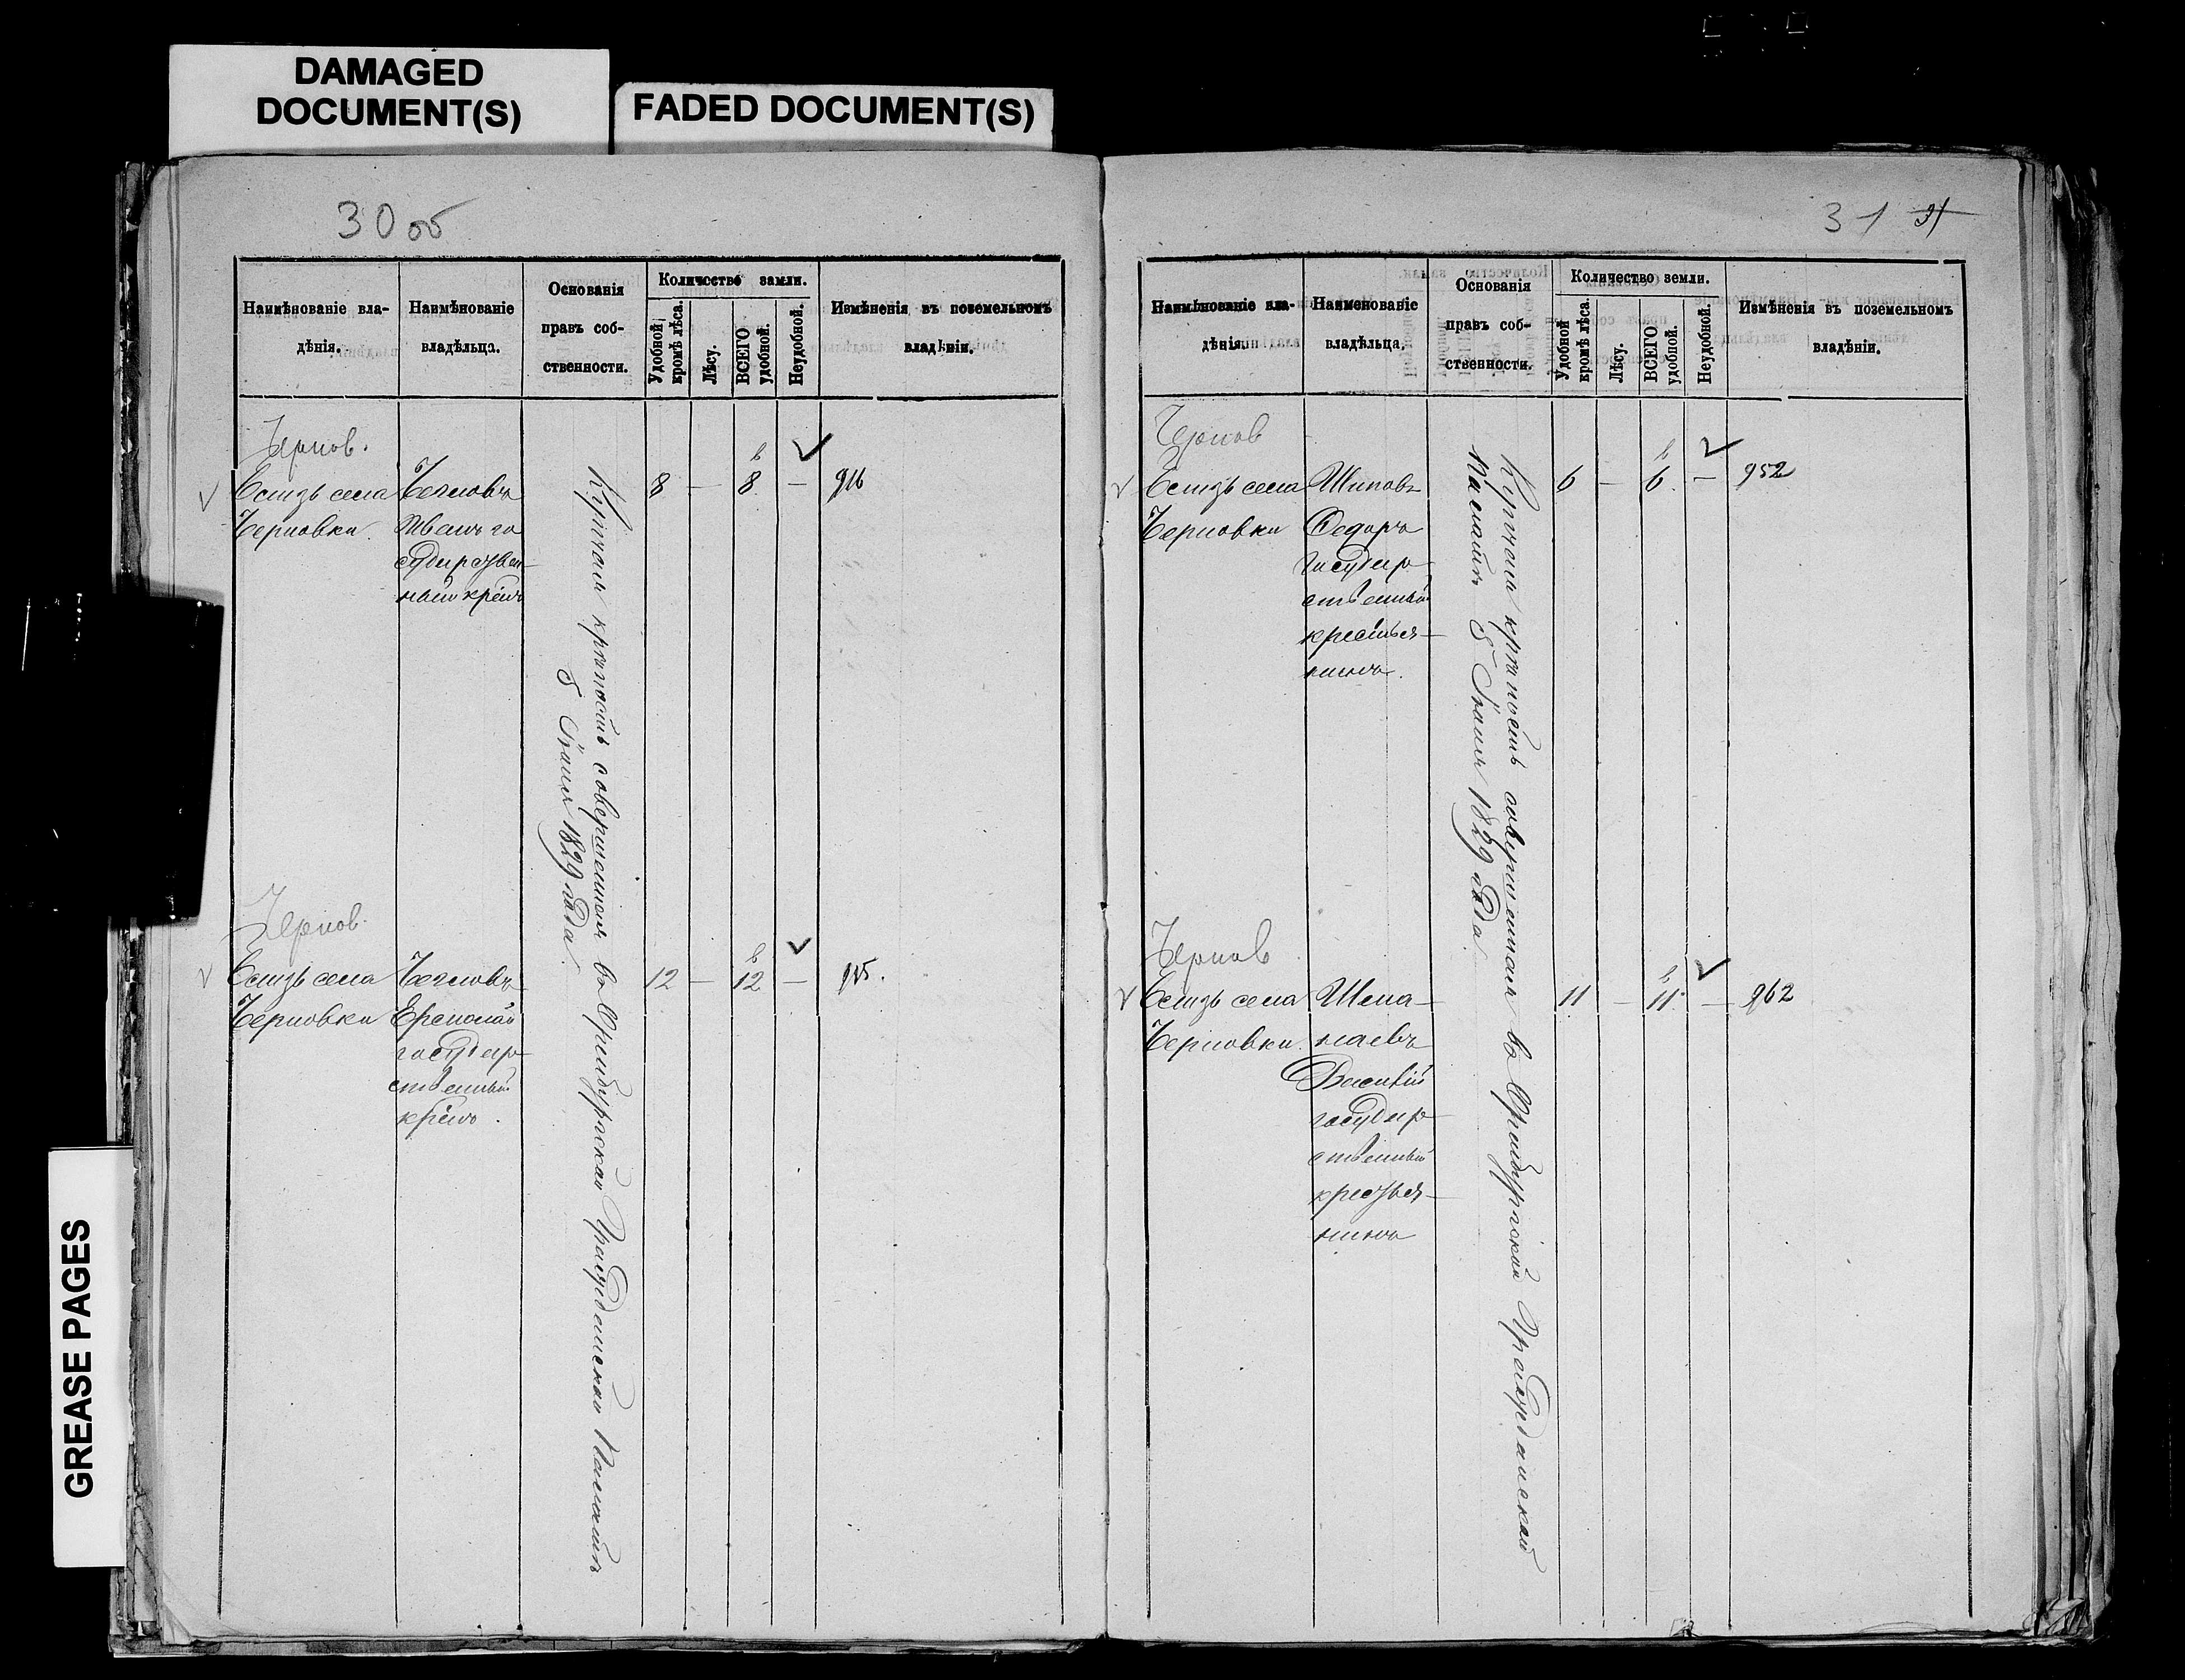 DAMAGED
DOCUMENT(S)
FADED DOCUMENT(S)
GREASE PAGES
30 об
Наимѣнованіе вла-
дѣнія.
Наимѣнованіе
владѣльца.
Основанія
правъ соб-
ственности.
Количество земли.
Удобной
кромѣ лѣса.
Лѣсу.
ВСЕГО
удобной.
Неудобной.
Измѣненія въ поземельномъ
владѣніи.
Чернов.
Близь села
Черновки.
Иванъ го
сударствен-
ный кре-нъ
8 — 8. — 916
Купчая крѣпость совершенная въ Оренбургской Гражданской Палатѣ
5 Іюня 1829 года.
Чернов.
Близь села
Черновки
Ермолай
государ-
ственный
кре-нъ.
12 — 12 —
31
Наимѣнованіе вла-
дѣнія.
Наименованіе
владѣльца.
Основанія
правъ соб-
ственности.
Количество земли.
Удобной
кромѣ лѣса.
Лѣсу.
ВСЕГО
удобной.
Неудобной.
Измѣненія въ поземельномъ
владѣніи.
Чернов
Близь села
Черновки
Шиповъ
Федоръ
государ-
ственный
крестья-
нинъ.
6 — 6. — 952
Купчая крѣпость совершенная въ Оренбургской Гражданской
Палатѣ 5 Іюня 1829 года.
Чернов
Близь села
Черновки.
Василій
государ-
ственный
крестья-
нинъ
11 — 11. — 962